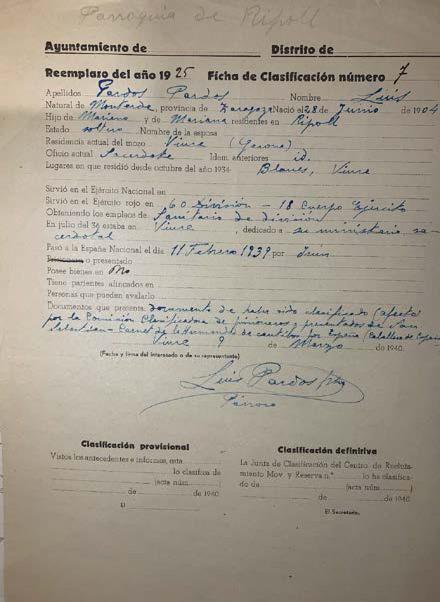 Parroquia de Ripoll
Ayuntamiento de Distrito de
Reemplazo del año 1925 Ficha de Clasificación número 7
Apellidos Pardos Pardos Nombre Luis
Natural de Monterde, provincia de Zaragoza Nació el 28 de Junio de 1904
Hijo de Mariano y de Mariana residentes en Ripoll
Estado soltero Nombre de la esposa
Residencia actual del mozo Viure (Gerona)
Oficio actual Sacerdote Idem. anteriores id.
Lugares en que residió desde octubre del año 1934 Blanes, Viure
Sirvió en el Ejército Nacional en
Sirvió en el Ejército rojo en 60 División - 18 Cuerpo Ejército
Obteniendo los empleos de Sanitario de división
En julio del 36 estaba en Viure, dedicado a su ministerio sa-
cerdotal
Pasó a la España Nacional el día 11 Febrero 1939 por Irún
Prisionero o presentado
Posee bienes en No
Tiene parientes afincados en
Personas que puedan avalarlo
Documentos que presenta documento de haber sido clasificado (afecto)
por la Comisión Clasificadora de prisioneros y presentados de San
Sebastian - Carnet de la Hermandad de cautivos por España (Caballero de España)
Viure 9 de Marzo de 1940.
(Fecha y firma del interesado o de su representante)
Luis Pardos
Párroco
Clasificación provisional Clasificación definitiva
Vistos los antecedentes e informes, esta La Junta de Clasificación del Centro de Recluta-
lo clasifica de miento Mov. y Reserva n.º lo ha clasifica-
(acta núm. ) do de (acta núm.
de de 1940 de de 1940
El El Secretario,